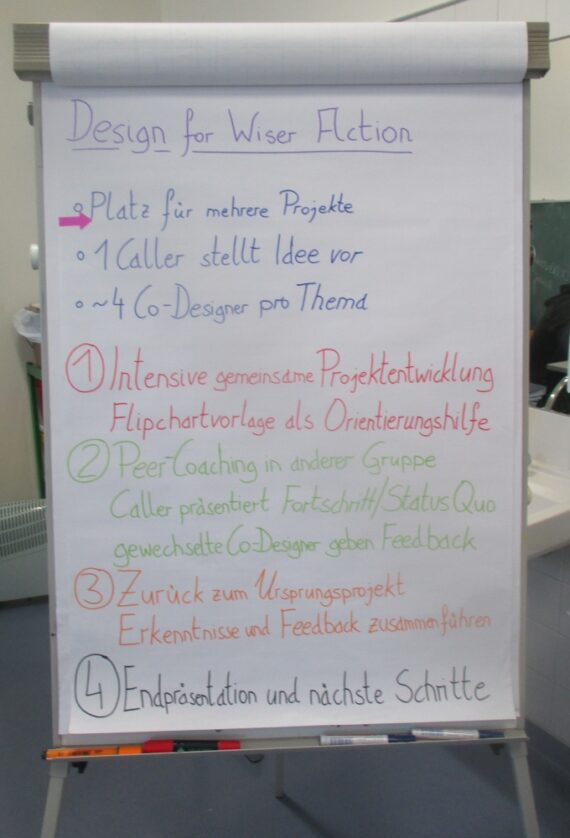 Design for Wiser Action
Platz für mehrere Projekte
1 Caller stellt Idee vor
~4 Co-Designer pro Thema
1 Intensive gemeinsame Projektentwicklung
Flipchartvorlage als Orientierungshilfe
2 Peer-Coaching in anderer Gruppe
Caller präsentiert Fortschritt/Status Quo
gewechselte Co-Designer geben Feedback
3 Zurück zum Ursprungsprojekt
Erkenntnisse und Feedback zusammenführen
4 Endpräsentation und nächste Schritte